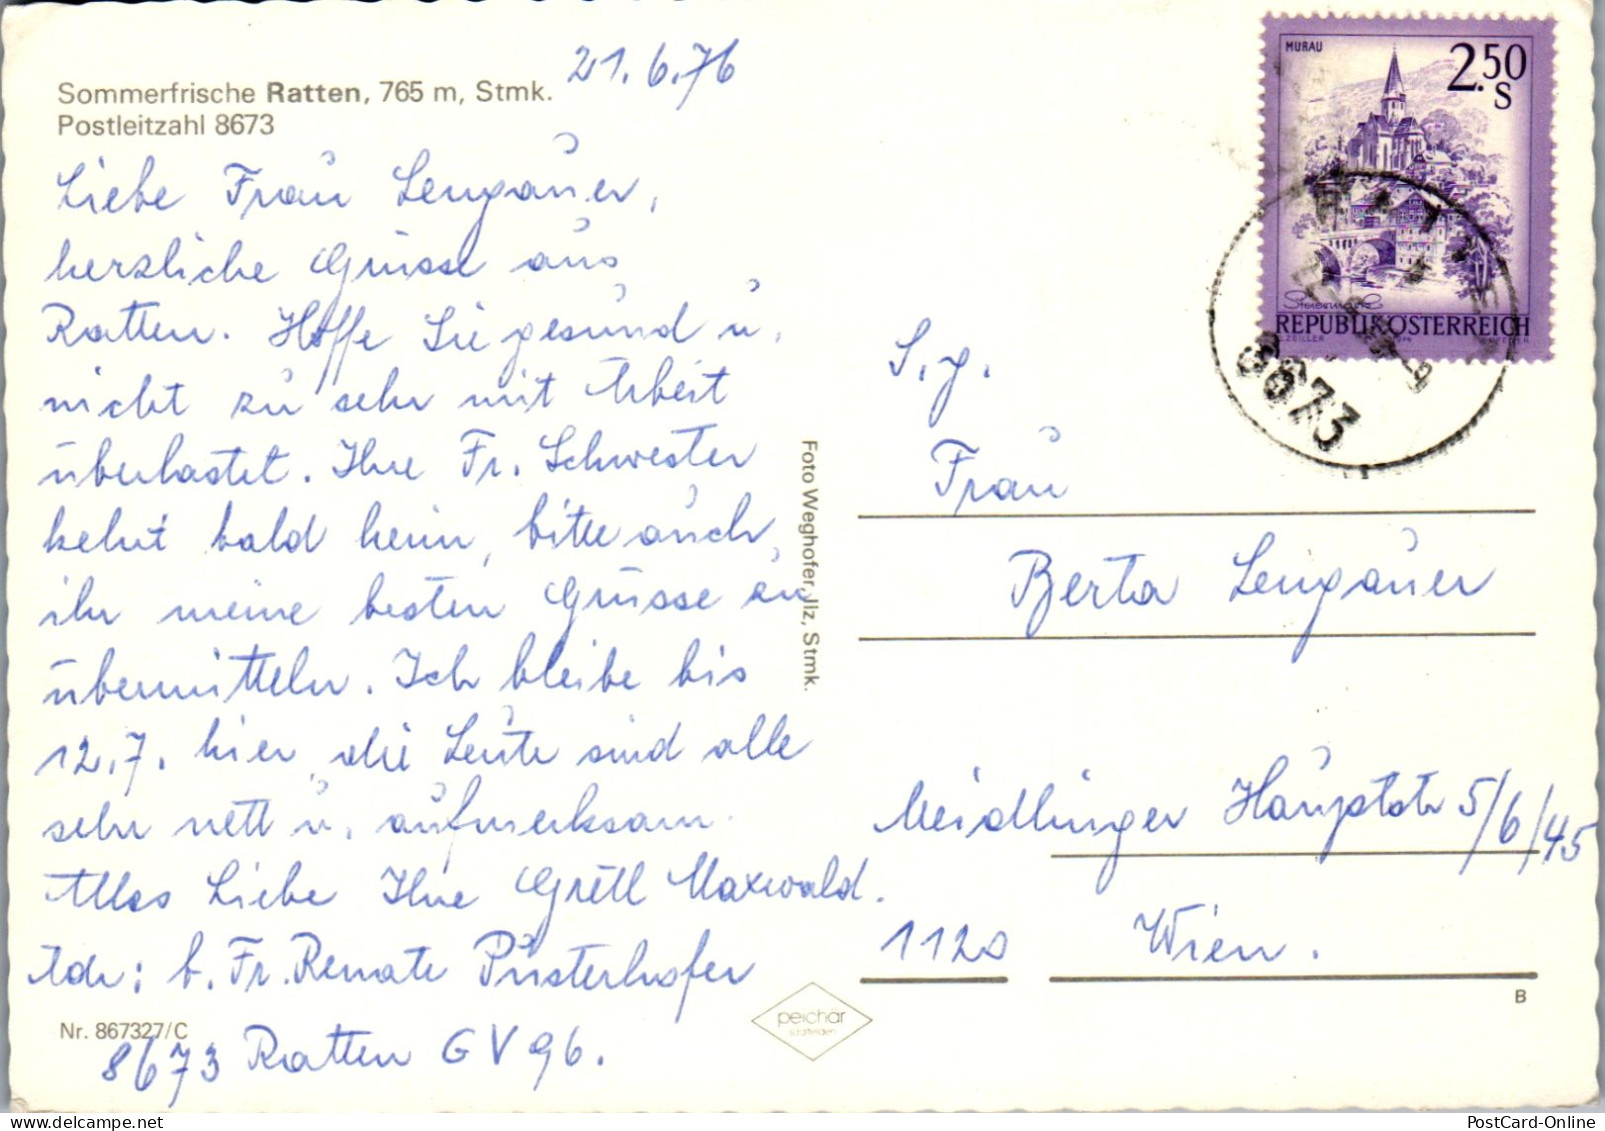 21.6.76
Sommerfrische Ratten, 765 m, Stmk.
Postleitzahl 8673
Liebe Frau Lengauer,
herzliche Grüsse aus
Ratten. Hoffe Sie gesund u.
nicht zu sehr mit Arbeit
überlastet. Ihre Fr. Schwester
kehrt bald heim, bitte auch
ihr meine besten Grüsse zu
übermitteln. Ich bleibe bis
12.7. hier, die Leute sind alle
sehr nett u. aufmerksam.
Alles Liebe Ihre Gretl Maxwald.
Adr: b. Fr. Renate Pusterhofer
8673 Ratten GV 96.
Nr. 867327/C
Foto Weghofer, Ilz, Stmk.
peichär
MURAU
2.50
S
Steiermark
REPUBLIK ÖSTERREICH
8673
S.g.
Frau
Berta Lengauer
Meidlinger Hauptstr 5/6/45
1120 Wien.
B
PostCard-Online